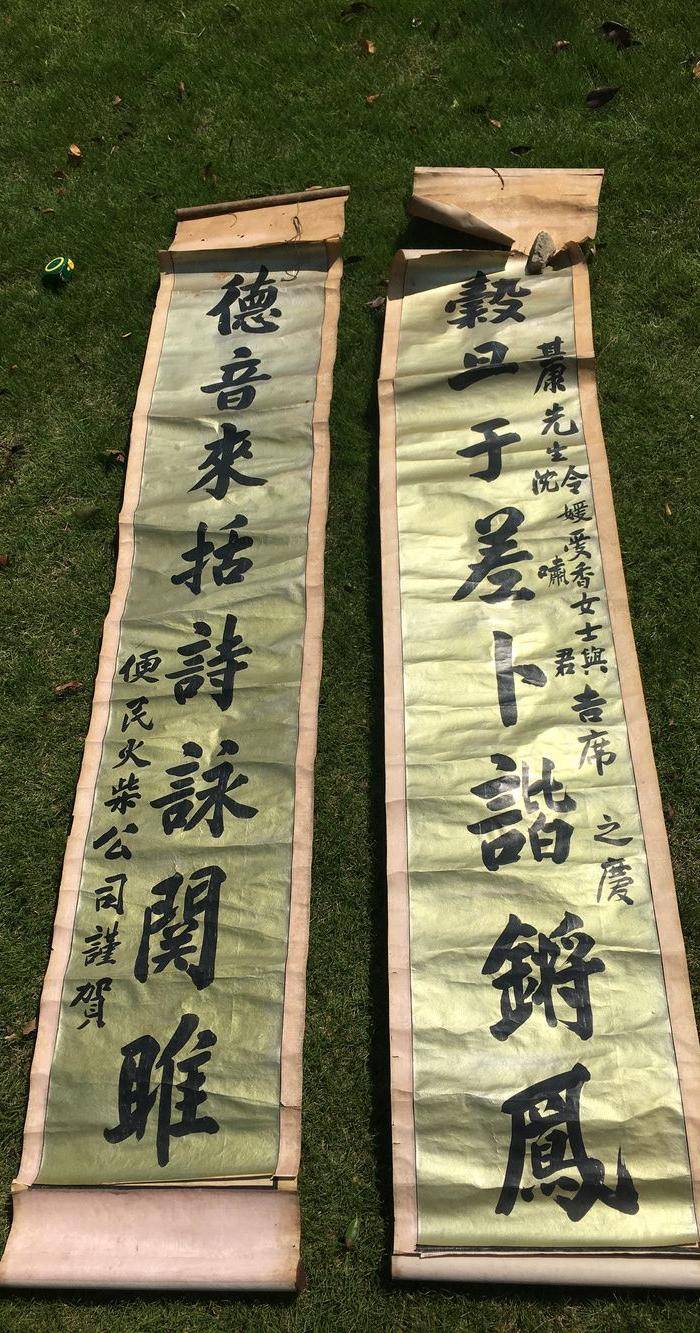 其康先生令媛愛香女士與沈嘯君吉席之慶
穀旦于差卜諧鏘鳳
德音來括詩詠関雎
便民火柴公司謹賀